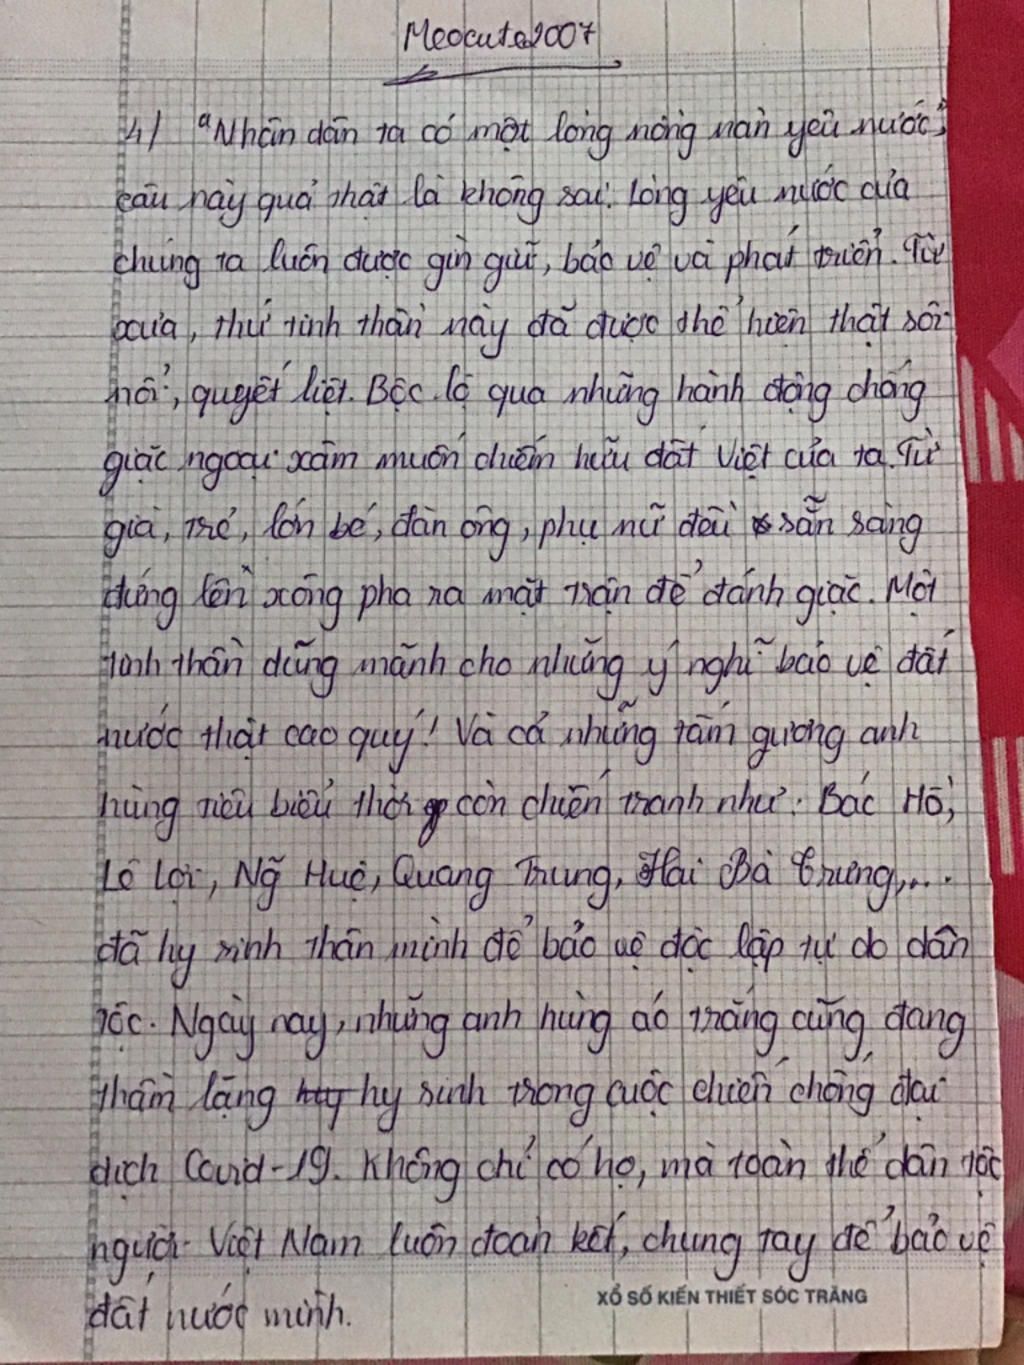 Meocute2007
4/ "Nhân dân ta có một lòng nồng nàn yêu nước",
câu này quả thật là không sai. Lòng yêu nước của
chúng ta luôn được gìn giữ, bảo vệ và phát triển. Từ
xưa, thứ tinh thần này đã được thể hiện thật sôi
nổi, quyết liệt. Bộc lộ qua những hành động chống
giặc ngoại xâm muốn chiếm hữu đất Việt của ta. Từ
già, trẻ, lớn bé, đàn ông, phụ nữ đều sẵn sàng
đứng lên xông pha ra mặt trận để đánh giặc. Một
tinh thần dũng mãnh cho những ý nghĩ bảo vệ đất
nước thật cao quý! Và cả những tấm gương anh
hùng tiêu biểu thời còn chiến tranh như: Bác Hồ,
Lê Lợi, Ng~ Huệ, Quang Trung, Hai Bà Trưng,...
đã hy sinh thân mình để bảo vệ độc lập tự do dân
tộc. Ngày nay, những anh hùng áo trắng cũng đang
thầm lặng hy sinh trong cuộc chiến chống đại
dịch Covid-19. Không chỉ có họ, mà toàn thể dân tộc
người Việt Nam luôn đoàn kết, chung tay để bảo vệ
đất nước mình.
XỔ SỐ KIẾN THIẾT SÓC TRĂNG